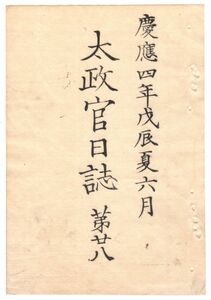 慶應四年戊辰夏六月
太政官日誌 第廿八